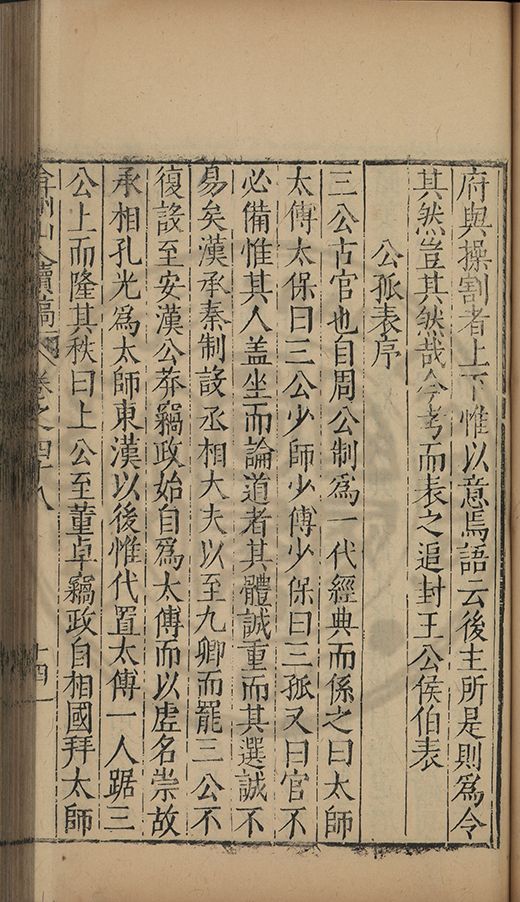 府與操割者上下惟以意焉語云後主所是則為令
其然豈其然哉今考而表之追封王公侯伯表
公孤表序
三公古官也自周公制為一代經典而係之曰太師
太傅太保曰三公少師少傅少保曰三孤又曰官不
必備惟其人盖坐而論道者其體誠重而其選誠不
易矣漢承秦制設丞相大夫以至九卿而罷三公不
復設至安漢公莽竊政始自為太傅而以虛名崇故
丞相孔光為太師東漢以後惟代置太傅一人踞三
公上而隆其秩曰上公至董卓竊政自相國拜太師
弇州山人續稿 卷之四十八 十四